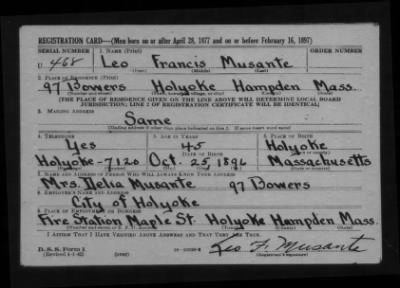 REGISTRATION CARD—(Men born on or after April 28, 1877 and on or before February 16, 1897)
SERIAL NUMBER 1. NAME (Print) ORDER NUMBER
U. 468 Leo Francis Musante
(First) (Middle) (Last)
2. PLACE OF RESIDENCE (Print)
97 Bowers Holyoke Hampden Mass.
(Number and street) (Town, township, village, or city) (County) (State)
[THE PLACE OF RESIDENCE GIVEN ON THE LINE ABOVE WILL DETERMINE LOCAL BOARD
JURISDICTION; LINE 2 OF REGISTRATION CERTIFICATE WILL BE IDENTICAL]
3. MAILING ADDRESS
Same
[Mailing address if other than place indicated on line 2. If same insert word same]
4. TELEPHONE 5. AGE IN YEARS 6. PLACE OF BIRTH
Yes 45 Holyoke
DATE OF BIRTH
Holyoke-7120 Oct. 25, 1896 Massachusetts
7. NAME AND ADDRESS OF PERSON WHO WILL ALWAYS KNOW YOUR ADDRESS
Mrs. Delia Musante 97 Bowers
8. EMPLOYER'S NAME AND ADDRESS
City of Holyoke
9. PLACE OF EMPLOYMENT OR BUSINESS
Fire Station Maple St. Holyoke Hampden Mass.
(Number and street or R. F. D. number) (Town) (County) (State)
I AFFIRM THAT I HAVE VERIFIED ABOVE ANSWERS AND THAT THEY ARE TRUE.
D. S. S. Form 1
(Revised 4-1-42) (over) Leo F. Musante
(Registrant's signature)